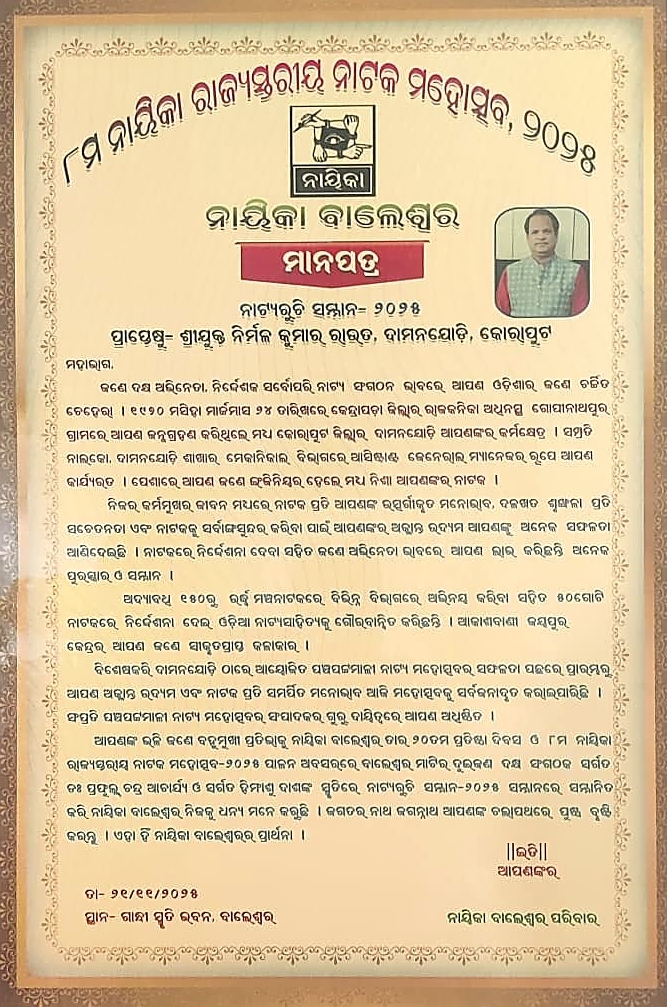 ୮ମ ନାୟିକା ରାଜ୍ୟସ୍ତରୀୟ ନାଟକ ମହୋତ୍ସବ, ୨୦୨୫
ନାୟିକା
ନାୟିକା ବାଲେଶ୍ୱର
ମାନପତ୍ର
ନାଟ୍ୟରୁଚି ସମ୍ମାନ= ୨୦୨୫
ପ୍ରାପ୍ତେଷୁ= ଶ୍ରୀଯୁକ୍ତ ନିର୍ମଳ କୁମାର ରାଉତ, ଦାମନଯୋଡ଼ି, କୋରାପୁଟ
ମହାଭାଗ,
ଜଣେ ଦକ୍ଷ ଅଭିନେତା, ନିର୍ଦ୍ଦେଶକ ସର୍ବୋପରି ନାଟ୍ୟ ସଂଗଠନ ଭାବରେ ଆପଣ ଓଡ଼ିଶାର ଜଣେ ଚର୍ଚ୍ଚିତ
ଚେହେରା । ୧୯୭୦ ମସିହା ମାର୍ଚ୍ଚମାସ ୨୪ ତାରିଖରେ କେନ୍ଦ୍ରାପଡ଼ା ଜିଲ୍ଲାର ରାଜକନିକା ଅଧିନସ୍ଥ ଗୋପୀନାଥପୁର
ଗ୍ରାମରେ ଆପଣ ଜନ୍ମଗ୍ରହଣ କରିଥିଲେ ମଧ୍ୟ କୋରାପୁଟ ଜିଲ୍ଲାର ଦାମନଯୋଡ଼ି ଆପଣଙ୍କର କର୍ମକ୍ଷେତ୍ର । ସମ୍ପ୍ରତି
ନାଲକୋ, ଦାମନଯୋଡ଼ି ଶାଖାର ମେକାନିକାଲ୍ ବିଭାଗରେ ଆସିଷ୍ଟାଣ୍ଟ ଜେନେରାଲ୍ ମ୍ୟାନେଜର ରୂପେ ଆପଣ
କାର୍ଯ୍ୟରତ । ପେଶାରେ ଆପଣ ଜଣେ ଇଞ୍ଜିନିୟର ହେଲେ ମଧ୍ୟ ନିଶା ଆପଣଙ୍କର ନାଟକ ।
ନିଜର କର୍ମମୁଖର ଜୀବନ ମଧ୍ୟରେ ନାଟକ ପ୍ରତି ଆପଣଙ୍କ ଉତ୍ସର୍ଗୀକୃତ ମନୋଭାବ, ଦଳଗତ ଶୃଙ୍ଖଳା ପ୍ରତି
ସଚେତନତା ଏବଂ ନାଟକକୁ ସର୍ବାଙ୍ଗସୁନ୍ଦର କରିବା ପାଇଁ ଆପଣଙ୍କର ଅକ୍ଳାନ୍ତ ଉଦ୍ୟମ ଆପଣଙ୍କୁ ଅନେକ ସଫଳତା
ଆଣିଦେଇଛି । ନାଟକରେ ନିର୍ଦ୍ଦେଶନା ଦେବା ସହିତ ଜଣେ ଅଭିନେତା ଭାବରେ ଆପଣ ଲାଭ କରିଛନ୍ତି ଅନେକ
ପୁରସ୍କାର ଓ ସମ୍ମାନ ।
ଅଦ୍ୟାବଧି ୧୫୦ରୁ ଉର୍ଦ୍ଧ୍ୱ ମଞ୍ଚନାଟକରେ ବିଭିନ୍ନ ବିଭାଗରେ ଅଭିନୟ କରିବା ସହିତ ୫୦ଗୋଟି
ନାଟକରେ ନିର୍ଦ୍ଦେଶନା ଦେଇ ଓଡ଼ିଆ ନାଟ୍ୟସାହିତ୍ୟକୁ ଗୌରବାନ୍ୱିତ କରିଛନ୍ତି । ଆକାଶବାଣୀ ଜୟପୁର
କେନ୍ଦ୍ରର ଆପଣ ଜଣେ ସ୍ୱୀକୃତପ୍ରାପ୍ତ କଳାକାର ।
ବିଶେଷକରି ଦାମନଯୋଡ଼ି ଠାରେ ଆୟୋଜିତ ପଞ୍ଚପଟ୍ଟମାଳୀ ନାଟ୍ୟ ମହୋତ୍ସବର ସଫଳତା ପଛରେ ପ୍ରାରମ୍ଭରୁ
ଆପଣ ଅକ୍ଳାନ୍ତ ଉଦ୍ୟମ ଏବଂ ନାଟକ ପ୍ରତି ସମର୍ପିତ ମନୋଭାବ ଆଜି ମହୋତ୍ସବକୁ ସର୍ବଜନାଦୃତ କରାଇପାରିଛି ।
ସଂପ୍ରତି ପଞ୍ଚପଟ୍ଟମାଳୀ ନାଟ୍ୟ ମହୋତ୍ସବର ସଂପାଦକର ଗୁରୁ ଦାୟିତ୍ୱରେ ଆପଣ ଅଧିଷ୍ଠିତ ।
ଆପଣଙ୍କ ଭଳି ଜଣେ ବହୁମୁଖୀ ପ୍ରତିଭାକୁ ନାୟିକା ବାଲେଶ୍ୱର ତାର ୨୦ତମ ପ୍ରତିଷ୍ଠା ଦିବସ ଓ ୮ମ ନାୟିକା
ରାଜ୍ୟସ୍ତରୀୟ ନାଟକ ମହୋତ୍ସବ-୨୦୨୫ ପାଳନ ଅବସରରେ ବାଲେଶ୍ୱର ମାଟିର ଦୁଇଜଣ ଦକ୍ଷ ସଂଗଠକ ସ୍ୱର୍ଗତ
ଡଃ ପ୍ରଫୁଲ୍ଲ ଚନ୍ଦ୍ର ଆଚାର୍ଯ୍ୟ ଓ ସ୍ୱର୍ଗତ ହିମାଂଶୁ ଦାଶଙ୍କ ସ୍ମୃତିରେ ନାଟ୍ୟରୁଚି ସମ୍ମାନ-୨୦୨୫ ସମ୍ମାନରେ ସମ୍ମାନିତ
କରି ନାୟିକା ବାଲେଶ୍ୱର ନିଜକୁ ଧନ୍ୟ ମନେ କରୁଛି । ଜଗତର ନାଥ ଜଗନ୍ନାଥ ଆପଣଙ୍କ ଚଲାପଥରେ ପୁଷ୍ପ ବୃଷ୍ଟି
କରନ୍ତୁ । ଏହା ହିଁ ନାୟିକା ବାଲେଶ୍ୱରର ପ୍ରାର୍ଥନା ।
||ଇତି||
ଆପଣଙ୍କର
ତା- ୨୧/୧୧/୨୦୨୫
ସ୍ଥାନ- ଗାନ୍ଧୀ ସ୍ମୃତି ଭବନ, ବାଲେଶ୍ୱର
ନାୟିକା ବାଲେଶ୍ୱର ପରିବାର